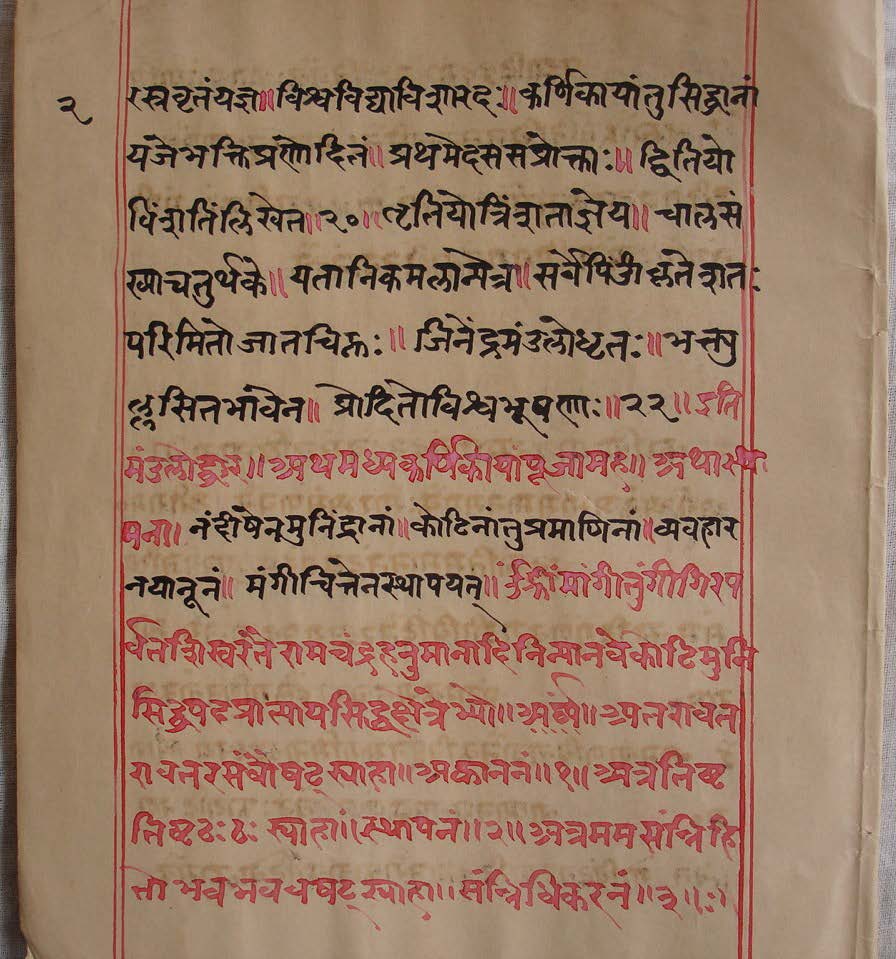 २
रस्रवृतंयज्ञ॥विश्वविद्याविशारदः॥कर्णिकायांतुसिद्धानां
यंजेभक्तिप्रणोदितं॥प्रथमेदससंप्रोक्ताः॥द्वितियो
विंशतिंलिखेत॥२०॥तृतियोत्रिंशताज्ञेय॥चालसं
ख्याचतुर्थके॥यतानिकमलान्येत्रा॥सर्वेपिंडीकृतेशतः
परिमितोजातचिह्नः॥जिनेंद्रमंडलोधृतः॥भक्त्यु
ल्लसितभावेन॥प्रोदितोविश्वभूषणः॥२२॥इति
मंडलोद्धार॥अथमध्यकर्णिकायांपूजामह॥अथास्था
पना॥नंदीषेनमुनिंद्रानां॥कोटिनांतुप्रमाणिनां॥व्यवहार
नयानूनं॥मंगीचित्तेनस्थापयत्॥ॐह्रींमांगीतुंगीगिरप
र्वतशिखरेतेरामचंद्रहनुमानादिनिन्यानवेकोटिमुनि
सिद्धपदप्राप्तायसिद्धक्षेत्रेभ्यो॥अर्घ्यं॥अतरावत
रावतरसंवौषट्स्वाहा॥अकाननं॥१॥अत्रतिष्ट
तिष्टठःठःस्वाहा॥स्थापनं॥२॥अत्रममसंन्निहि
तोभवभववषट्स्वाहा॥संन्निधिकरनं॥३॥ः॥